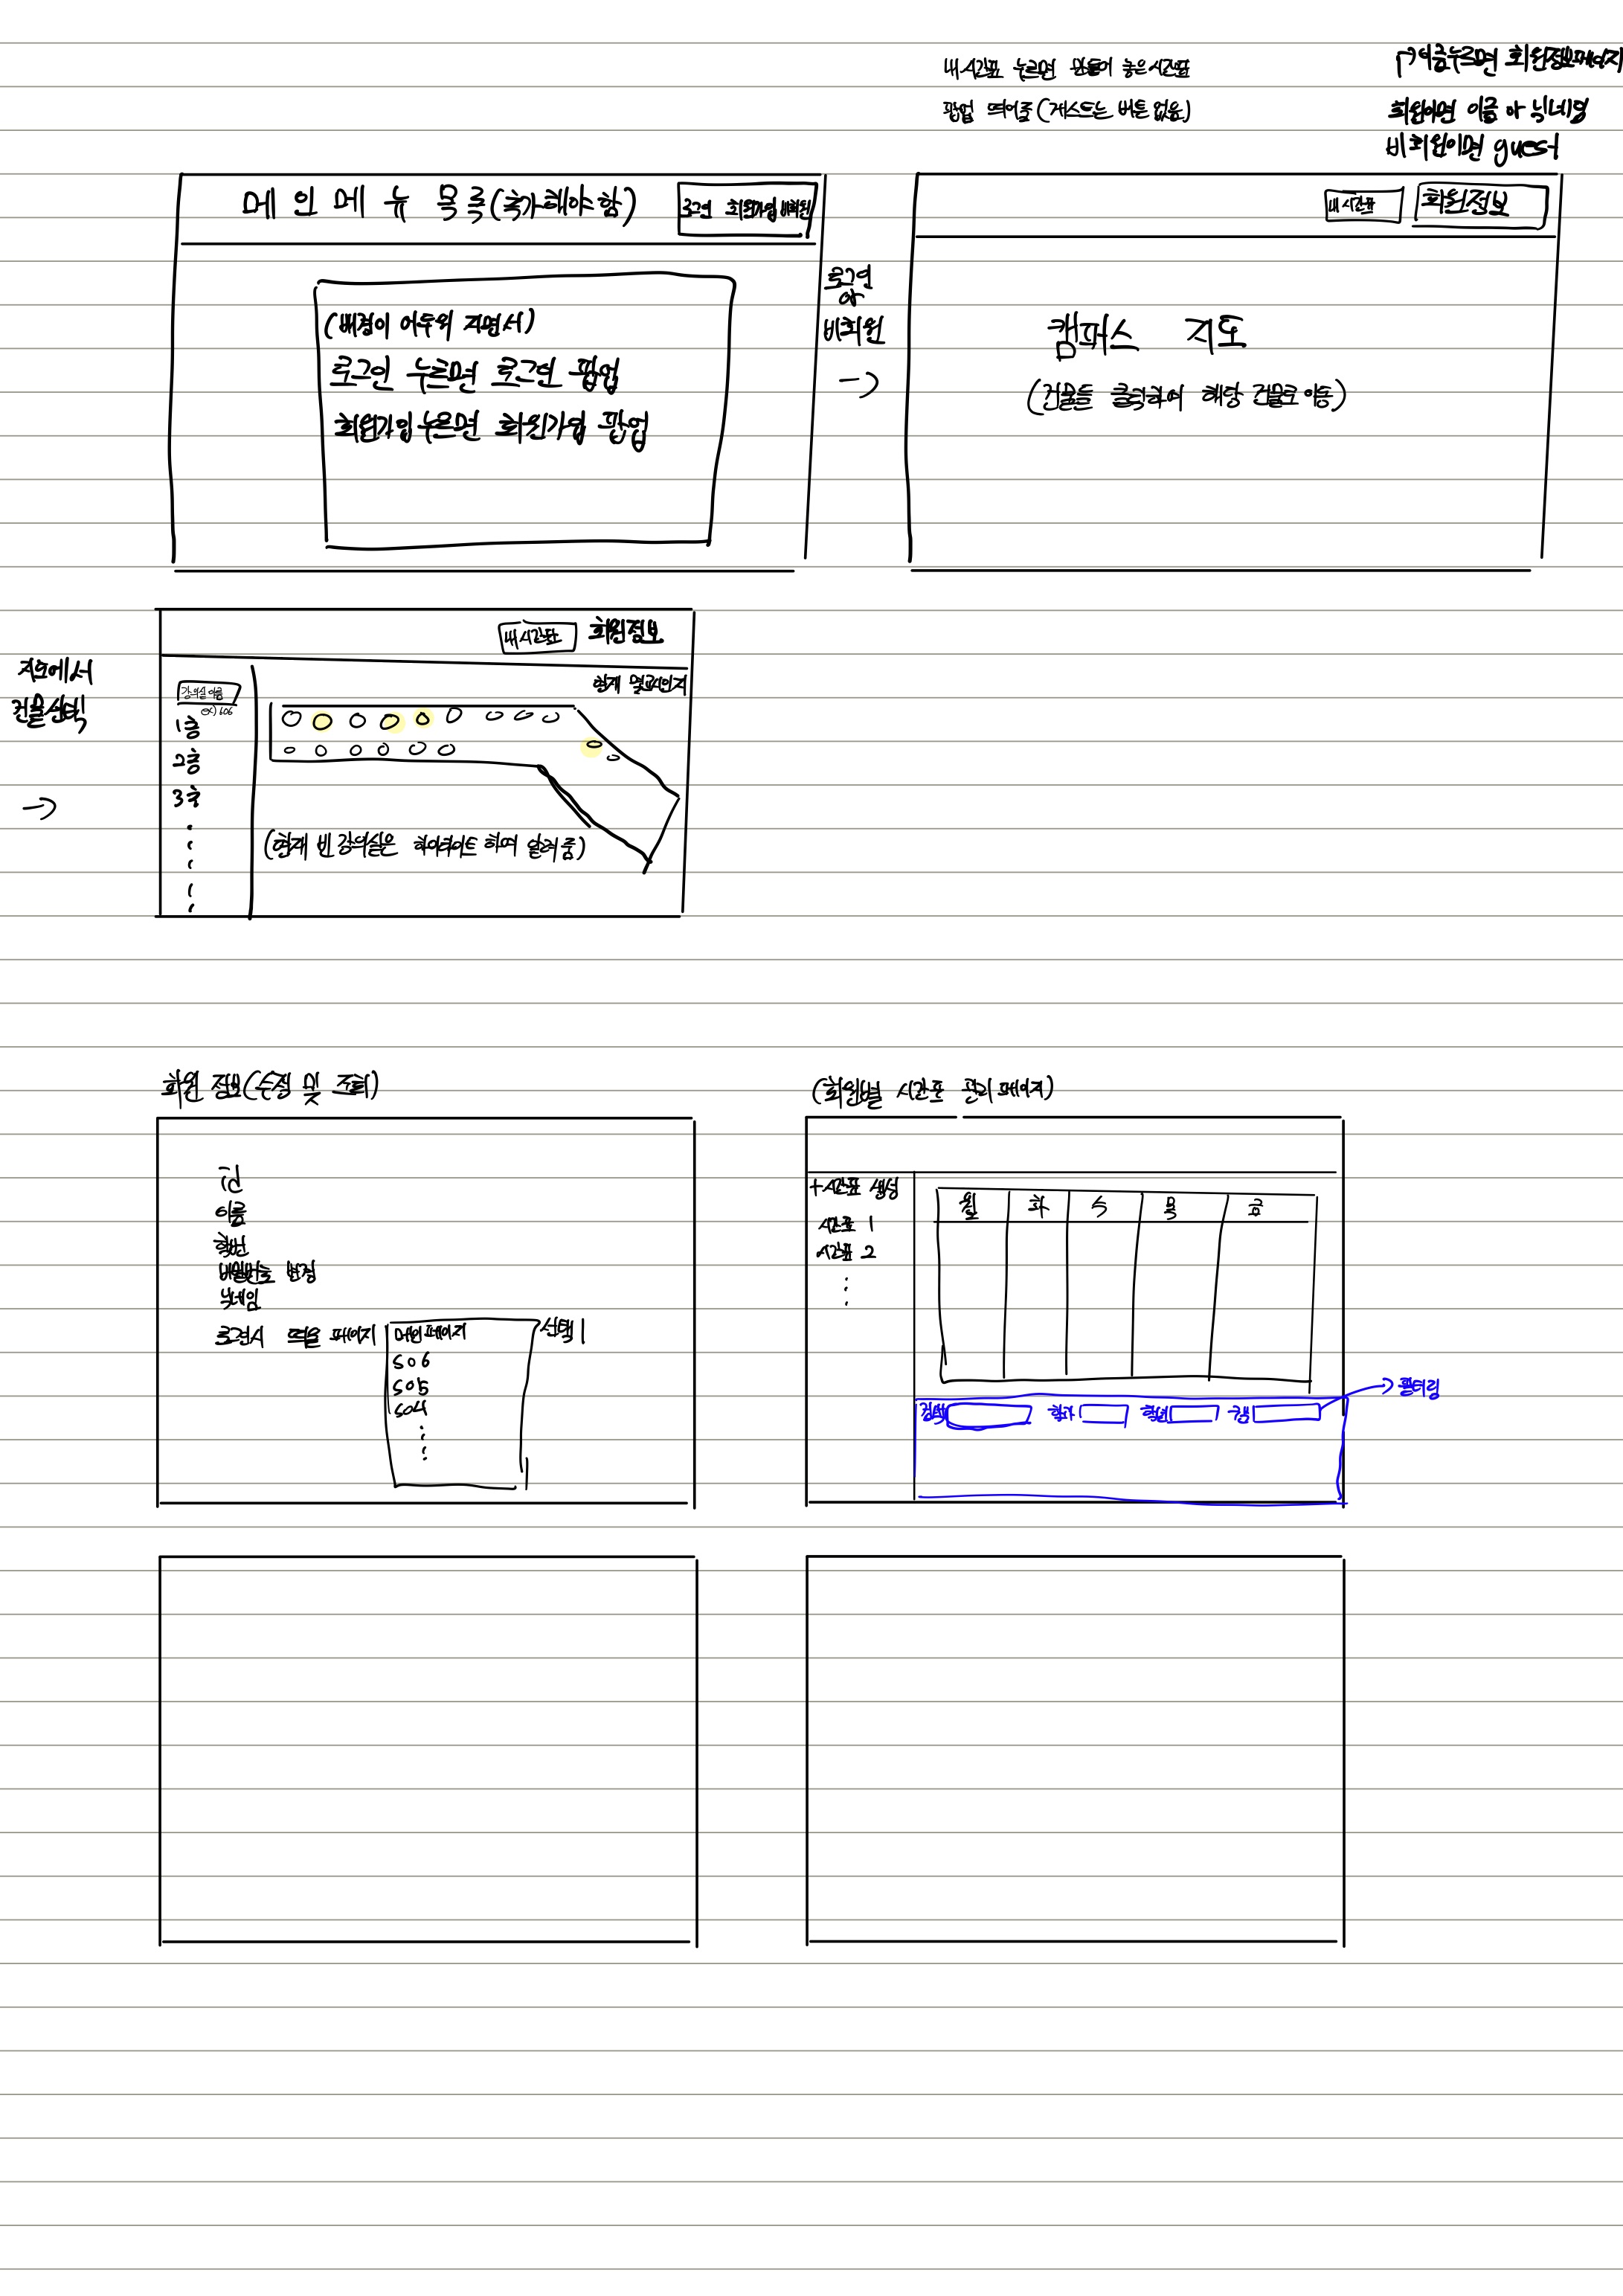 내 시간표 누르면 만들어 놓은 시간표
팝업 띄어줌 (게스트는 버튼 없음)
이름누르면 회원정보페이지
회원이면 이름 or 닉네임
비회원이면 guest
메인메뉴 목록(추가해야함)
로그인 회원가입 비회원
(배경이 어두워 지면서)
로그인 누르면 로그인 팝업
회원가입 누르면 회원가입 팝업
로그인
or
비회원
→
내 시간표
회원정보
캠퍼스 지도
(건물들 클릭하여 해당 건물로 이동)
지도에서
건물선택
→
내 시간표
회원정보
현재 몇교시인지
강의실 이름
ex) 606
1층
2층
3층
(현재 빈 강의실은 하이라이트 하여 알려줌)
회원 정보(수정 및 조회)
id
이름
학번
비밀번호 변경
닉네임
로그인시 띄울 페이지
메인페이지
S06
S05
S04
선택
(회원별 시간표 관리 페이지)
+시간표 생성
시간표 1
시간표 2
월 화 수 목 금
검색 학과 학년
필터링